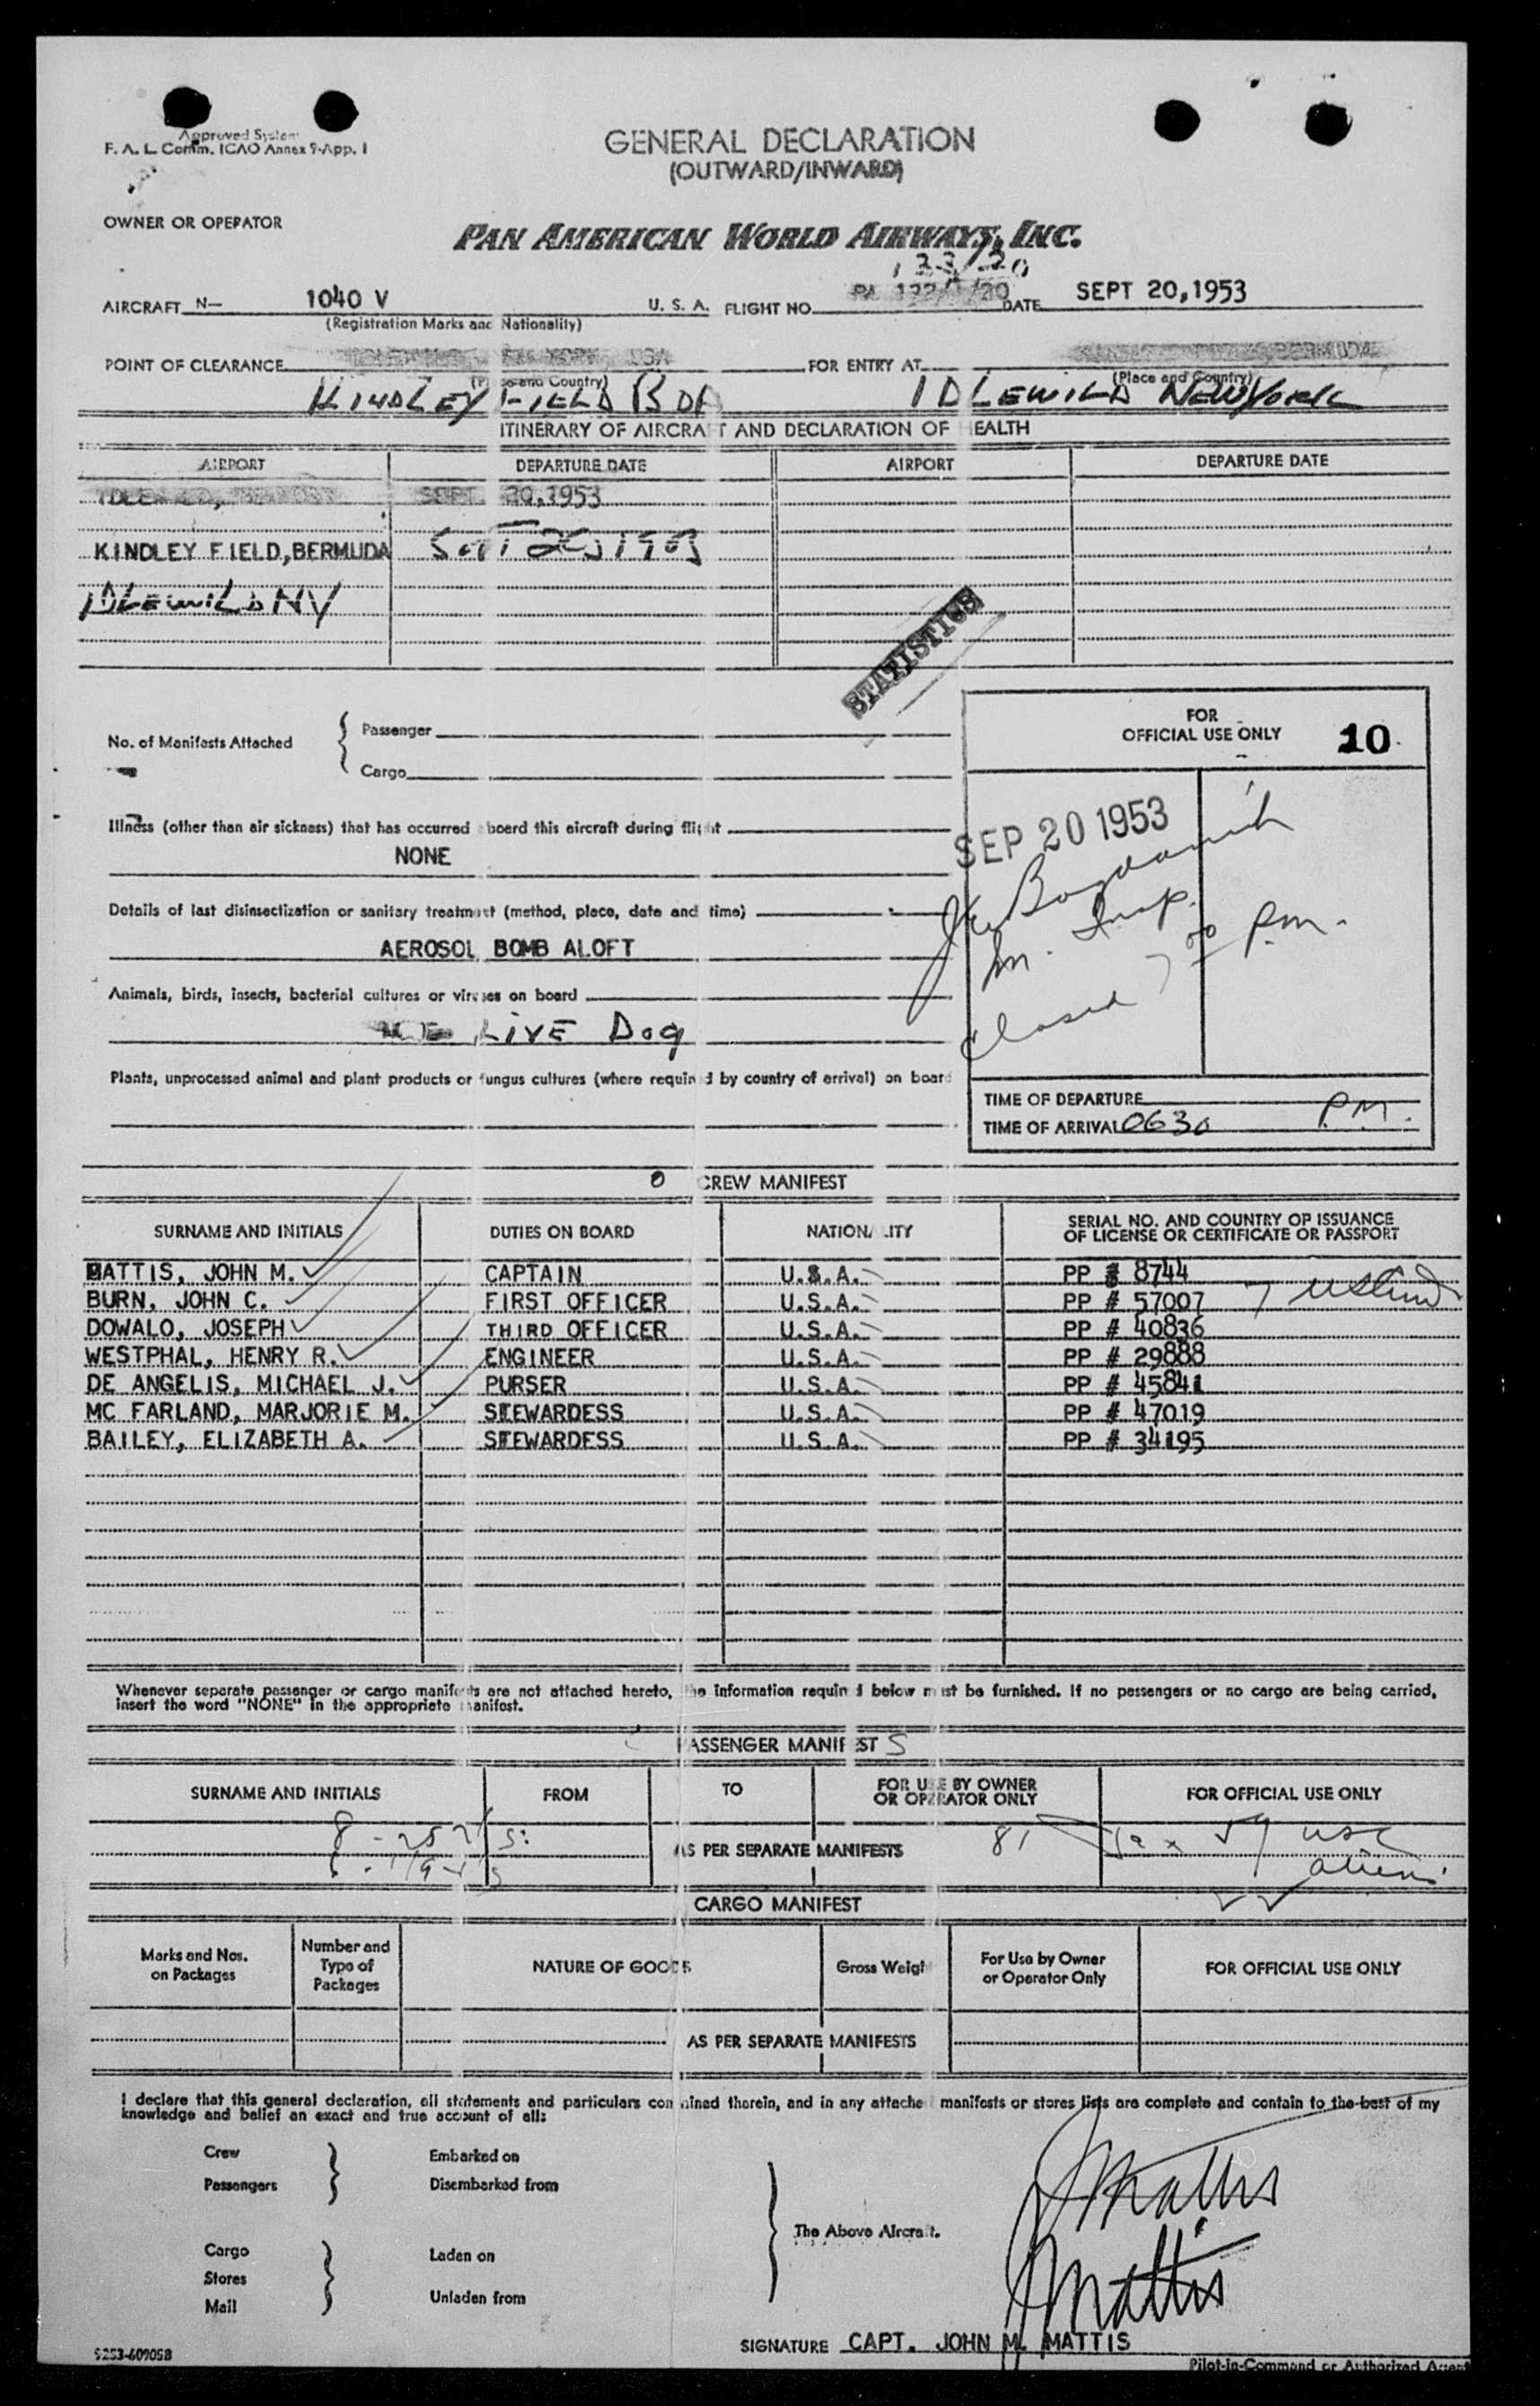 Approved System
F. A. L. Comm. ICAO Annex 9-App. 1
GENERAL DECLARATION
(OUTWARD/INWARD)
OWNER OR OPERATOR
PAN AMERICAN WORLD AIRWAYS, INC.
133/20
AIRCRAFT N— 1040 V U. S. A. FLIGHT NO. PA 132/1/20 DATE SEPT 20,1953
(Registration Marks and Nationality)
POINT OF CLEARANCE FOR ENTRY AT BERMUDA
(Place and Country) (Place and Country)
KINDLEY FIELD BDA IDLEWILD NEW YORK
ITINERARY OF AIRCRAFT AND DECLARATION OF HEALTH
AIRPORT DEPARTURE DATE AIRPORT DEPARTURE DATE
SEPT 20,1953
KINDLEY FIELD, BERMUDA
IDLEWILD NY
STATISTICS
No. of Manifests Attached
Passenger
Cargo
FOR
OFFICIAL USE ONLY 10
Illness (other than air sickness) that has occurred aboard this aircraft during flight
NONE
SEP 20 1953
Details of last disinsectization or sanitary treatment (method, place, date and time)
AEROSOL BOMB ALOFT
Im. Insp.
closed 7 00 P.M.
Animals, birds, insects, bacterial cultures or viruses on board
LIVE Dog
Plants, unprocessed animal and plant products or fungus cultures (where required by country of arrival) on board
TIME OF DEPARTURE
TIME OF ARRIVAL 0630 P.M.
CREW MANIFEST
SURNAME AND INITIALS DUTIES ON BOARD NATIONALITY SERIAL NO. AND COUNTRY OF ISSUANCE OF LICENSE OR CERTIFICATE OR PASSPORT
MATTIS, JOHN M. CAPTAIN U.S.A. PP # 8744
BURN, JOHN C. FIRST OFFICER U.S.A. PP # 57007
DOWALO, JOSEPH THIRD OFFICER U.S.A. PP # 40836
WESTPHAL, HENRY R. ENGINEER U.S.A. PP # 29888
DE ANGELIS, MICHAEL J. PURSER U.S.A. PP # 45841
MC FARLAND, MARJORIE M. STEWARDESS U.S.A. PP # 47019
BAILEY, ELIZABETH A. STEWARDESS U.S.A. PP # 34195
Whenever separate passenger or cargo manifests are not attached hereto, the information required below must be furnished. If no passengers or no cargo are being carried,
insert the word "NONE" in the appropriate manifest.
PASSENGER MANIFEST S
SURNAME AND INITIALS FROM TO FOR USE BY OWNER OR OPERATOR ONLY FOR OFFICIAL USE ONLY
AS PER SEPARATE MANIFESTS 81 59 usc
aliens
CARGO MANIFEST
Marks and Nos. on Packages Number and Type of Packages NATURE OF GOODS Gross Weight For Use by Owner or Operator Only FOR OFFICIAL USE ONLY
AS PER SEPARATE MANIFESTS
I declare that this general declaration, all statements and particulars contained therein, and in any attached manifests or stores lists are complete and contain to the best of my
knowledge and belief an exact and true account of all:
Crew Embarked on
Passengers Disembarked from
The Above Aircraft.
Cargo Laden on
Stores
Mail Unladen from
J Mattis
J Mattis
SIGNATURE CAPT. JOHN M. MATTIS
Pilot-in-Command or Authorized Agent
9253-60905B